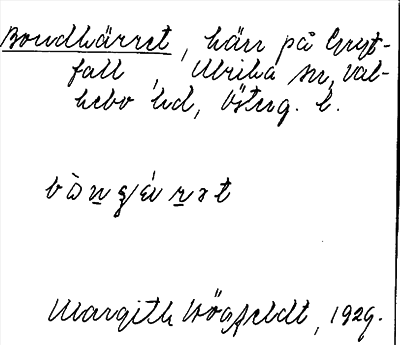 Bondkärret, kärr på Gryt-
fall, Ulrika sn, Val-
kebo hd, Österg. l.
bòngȧrət
Margith Högfeldt, 1929.